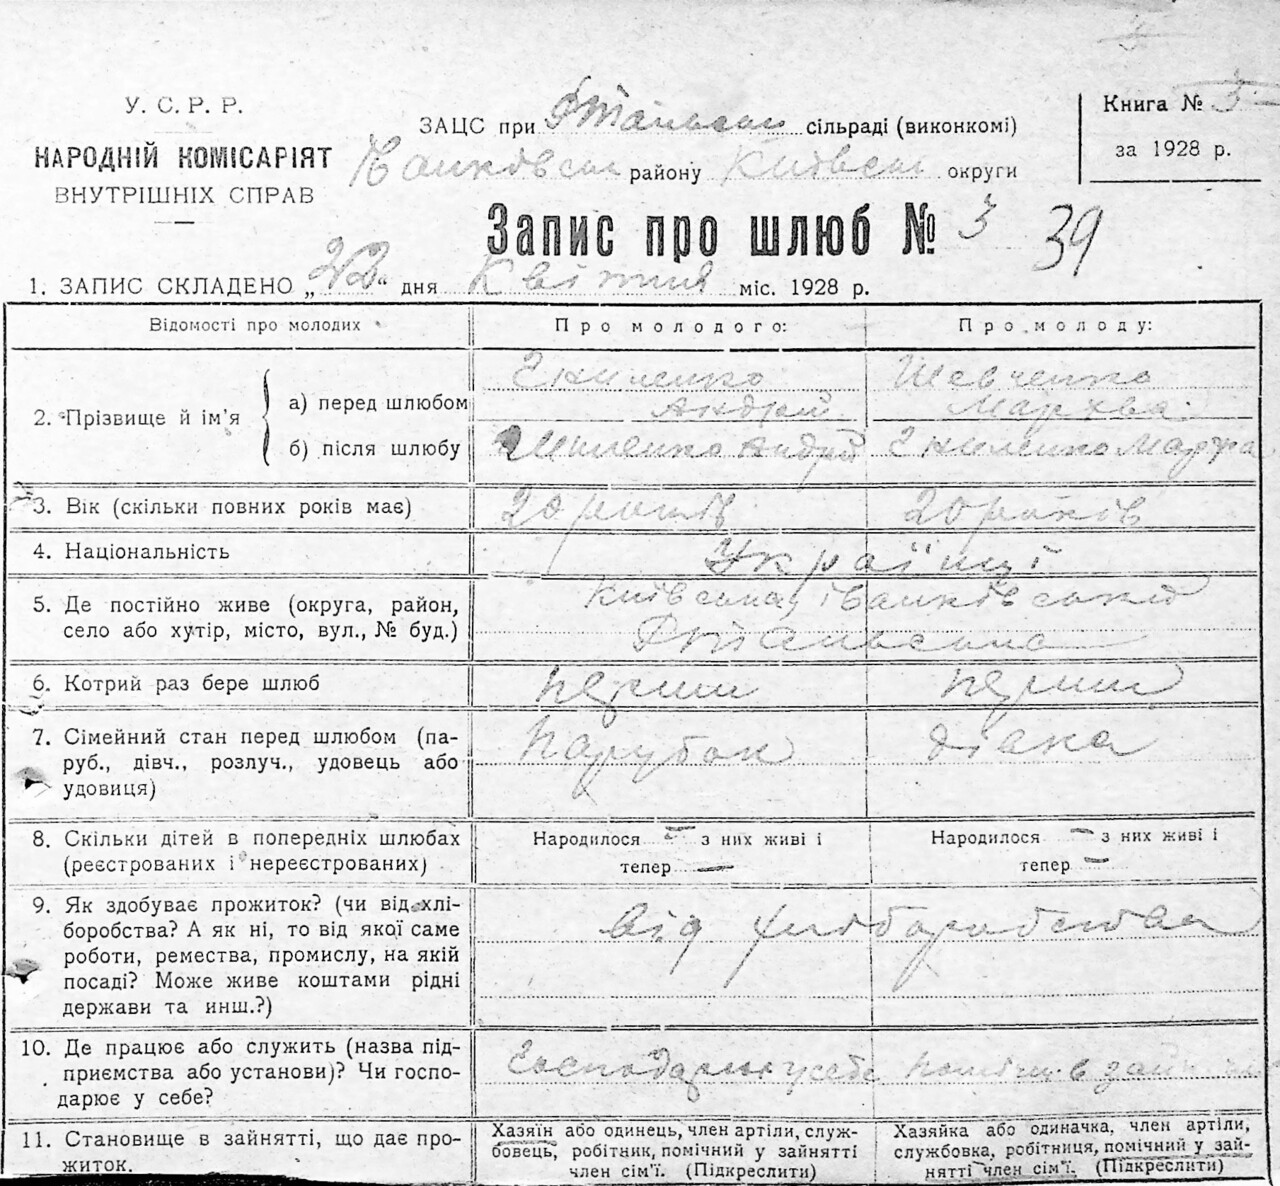 У. С. Р. Р.
НАРОДНІЙ КОМІСАРІЯТ
ВНУТРІШНІХ СПРАВ
ЗАЦС при сільраді (виконкомі)
району Київськ округи
Книга № 3
за 1928 р.
Запис про шлюб № 3 39
1. ЗАПИС СКЛАДЕНО „22“ дня Квітня міс. 1928 р.
Відомості про молодих Про молодого: Про молоду:
2. Прізвище й ім’я
а) перед шлюбом Шевченко
Андрій Марфа
б) після шлюбу Андрій Марфа
3. Вік (скільки повних років має) 20 років 20 років
4. Національність Українці
5. Де постійно живе (округа, район, Київська, Іванківський
село або хутір, місто, вул., № буд.)
6. Котрий раз бере шлюб перший перший
7. Сімейний стан перед шлюбом (па- Парубок дівка
руб., дівч., розлуч., удовець або
удовиця)
8. Скільки дітей в попередніх шлюбах Народилося — з них живі і Народилося — з них живі і
(реєстрованих і нереєстрованих) тепер — тепер —
9. Як здобуває прожиток? (чи від хлі- від хліборобства
боробства? А як ні, то від якої саме
роботи, ремества, промислу, на якій
посаді? Може живе коштами рідні
держави та инш.?)
10. Де працює або служить (назва під- Господарює у себе
приємства або установи)? Чи госпо-
дарює у себе?
11. Становище в зайнятті, що дає про- Хазяїн або одинець, член артіли, служ- Хазяйка або одиначка, член артіли,
житок. бовець, робітник, помічний у зайнятті службовка, робітниця, помічний у зай-
член сім’ї. (Підкреслити) нятті член сім’ї. (Підкреслити)